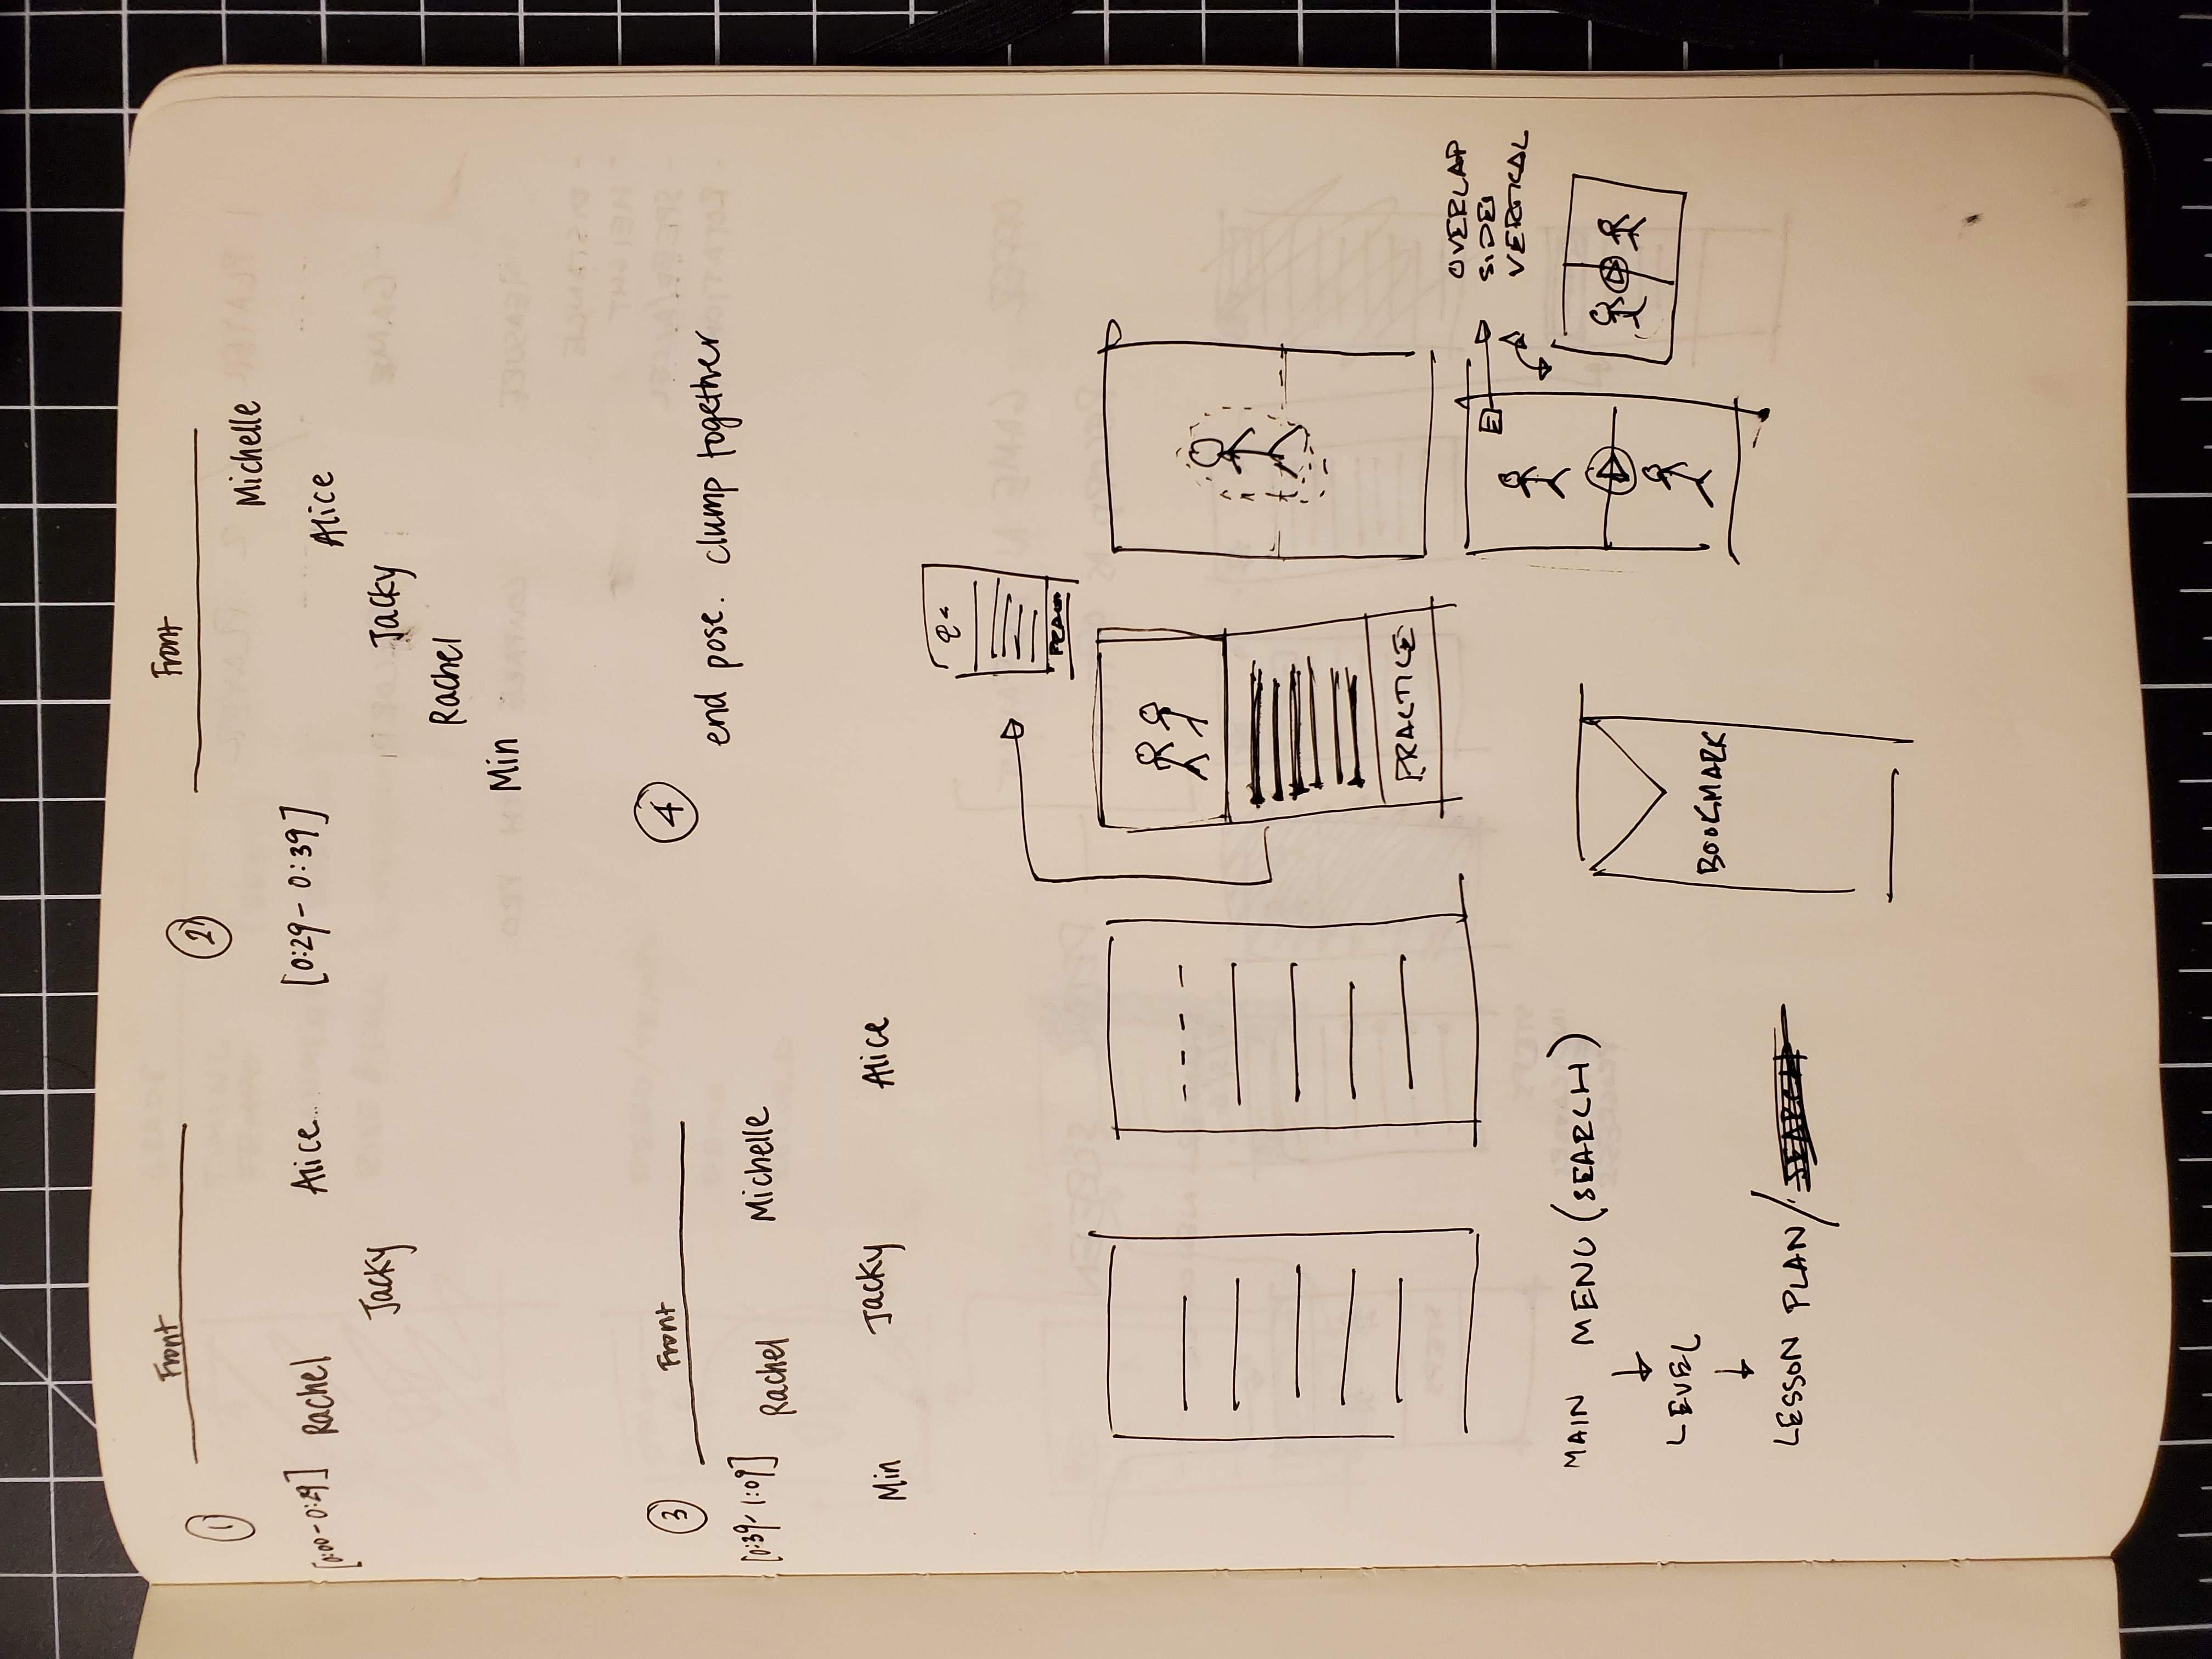 Front
①
[0:00-0:29] Rachel Alice
Jacky
Front
②
Michelle
[0:29-0:39] Alice
Jacky
Rachel
Min
③ Front
[0:39-1:09] Rachel Michelle
Min Jacky Alice
④
end pose. clump together
PRACTICE
OVERLAP
SIDE
VERTICAL
MAIN MENU (SEARCH)
↓
LEVEL
↓
LESSON PLAN/
BOOKMARK